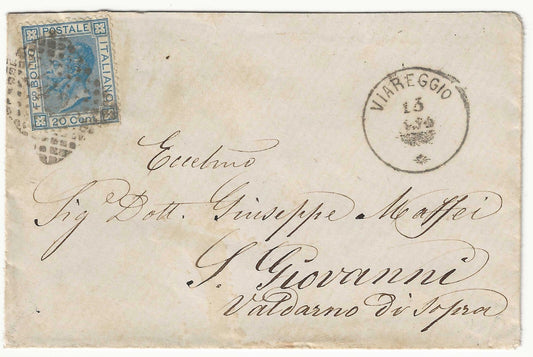 F.BOLLO POSTALE ITALIANO
20 Cent
VIAREGGIO
13
Eccellmo
Sigᵉ Dott. Giuseppe Maffei
S. Giovanni
Valdarno di Sopra